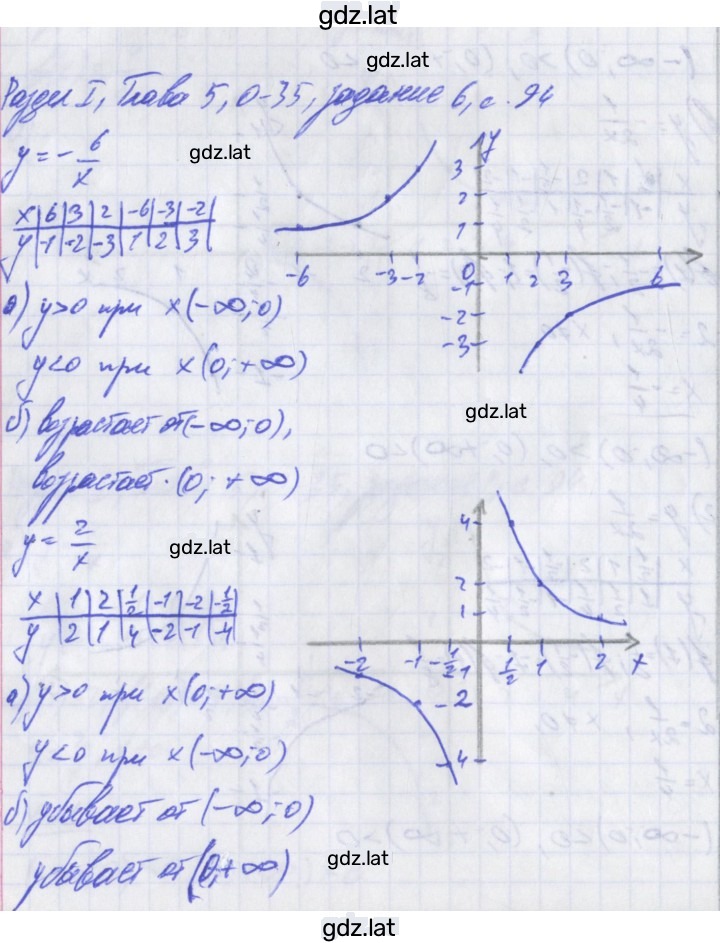 gdz.lat
gdz.lat
Раздел I, Глава 5, О-35, задание 6, с. 94
y = - 6/x
gdz.lat
x | 6 | 3 | 2 | -6 | -3 | -2
y | -1 | -2 | -3 | 1 | 2 | 3
y
3
2
1
-6 -3 -2 0 1 2 3 6
-1
-2
-3
а) y>0 при x(-∞; 0)
y<0 при x(0; +∞)
gdz.lat
б) возрастает от(-∞; 0),
возрастает (0; +∞)
y = 2/x
gdz.lat
x | 1 | 2 | 1/2 | -1 | -2 | -1/2
y | 2 | 1 | 4 | -2 | -1 | -4
4
2
1
-2 -1 -1/2 1/2 1 2 x
-1
-2
-4
а) y>0 при x(0; +∞)
y<0 при x(-∞; 0)
б) убывает от (-∞; 0)
убывает от (0; +∞)
gdz.lat
gdz.lat